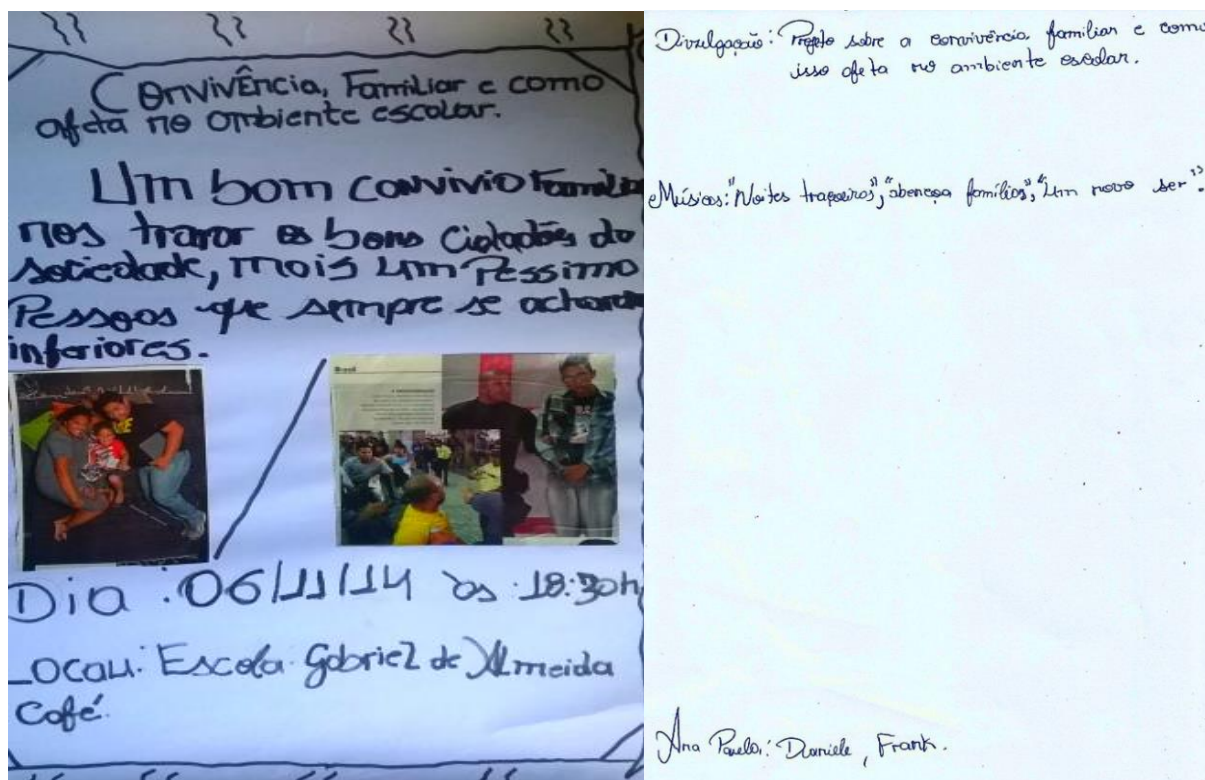 Convivência, Familiar e como
afeta no ambiente escolar.
Um bom convivio Familiar
nos trarar os bons cidadões da
sociedade, mais um Pessimo
Pessoas que sempre se acharam
inferiores.
Brasil
Dia : 06/11/14 às 18:30h
Local: Escola Gabriel de Almeida
Café.
Divulgação: Projeto sobre a convivência familiar e como
isso afeta no ambiente escolar.
Músicas: "Noites traçoeiras", "abençoa famílias", "Um novo ser".
Ana Paula, Daniele, Frank.